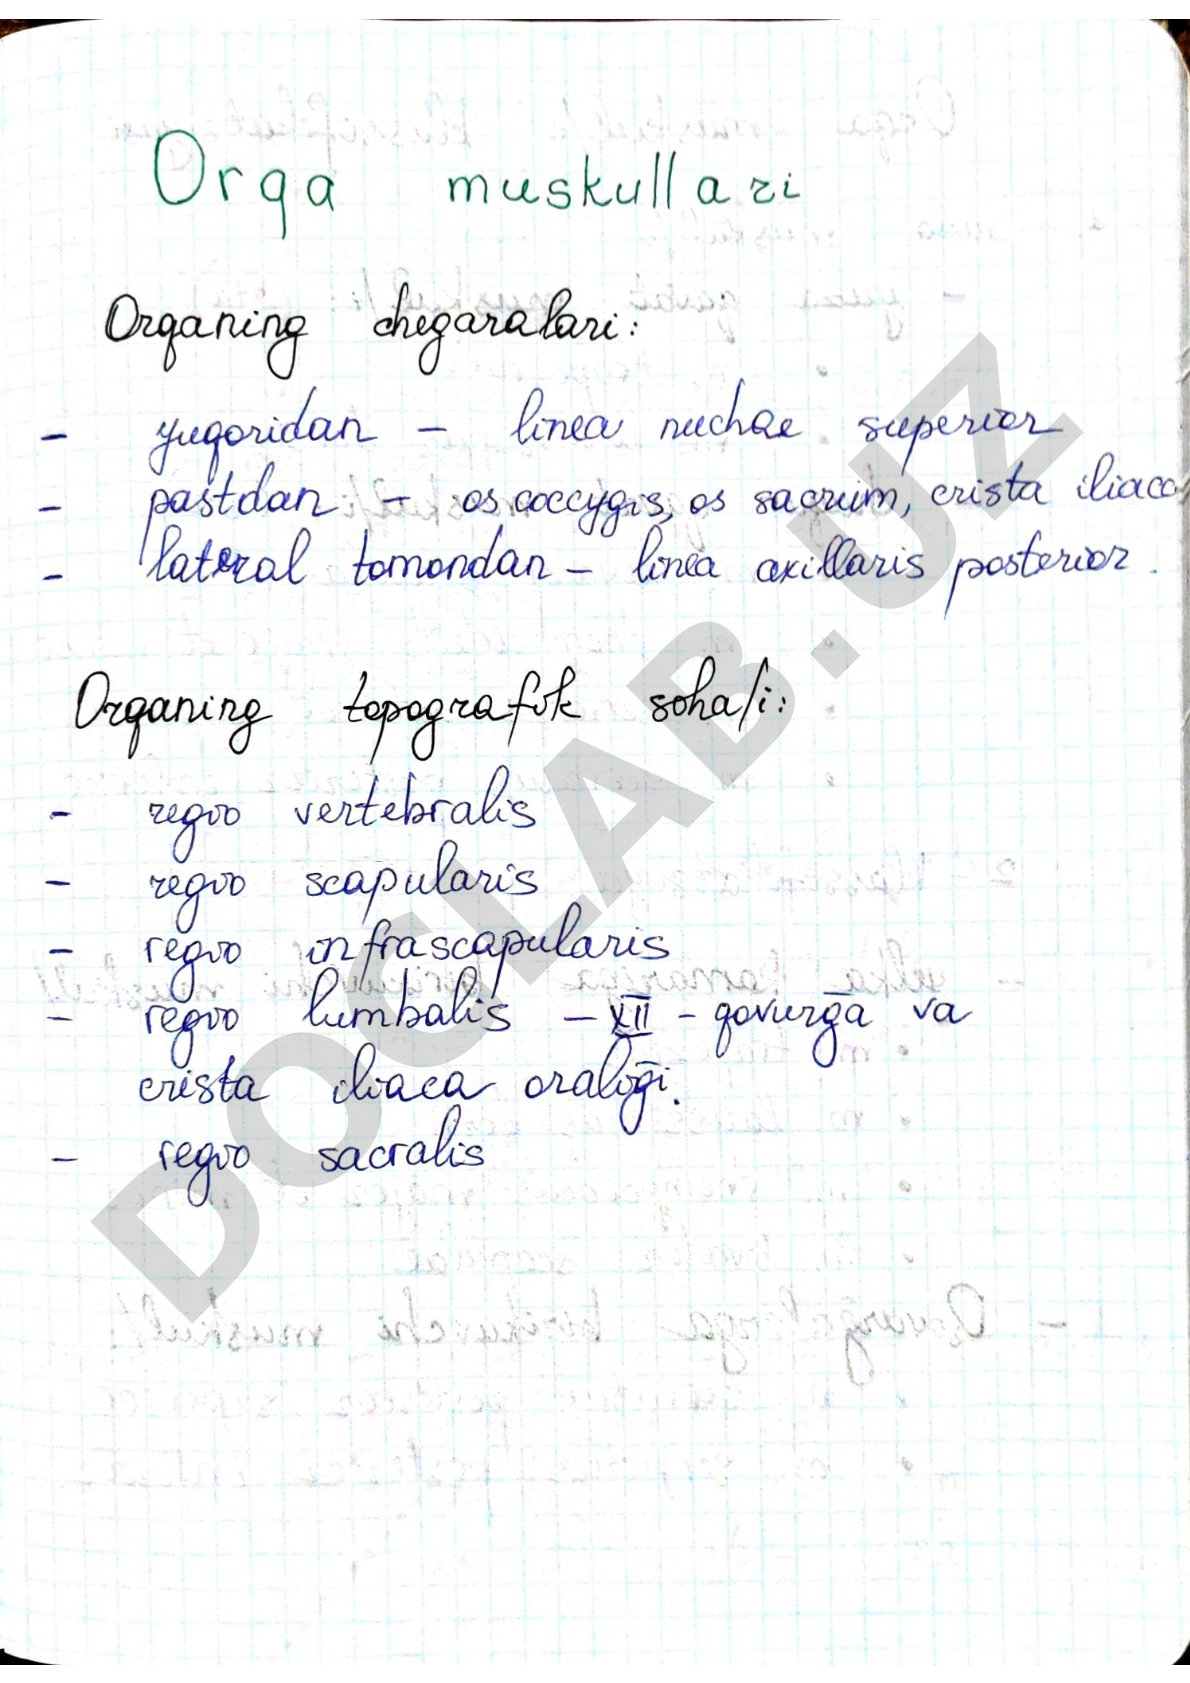 Orqa muskullari
Orqaning chegaralari:
- yuqoridan - linea nuchae superior
- pastdan - os coccygis, os sacrum, crista iliaca
- lateral tomondan - linea axillaris posterior.
Orqaning topografik soha/i:
- regio vertebralis
- regio scapularis
- regio infrascapularis
- regio lumbalis - XII - qovurg̅a va
crista iliaca oralig̅i.
- regio sacralis
DOCLAB.UZ